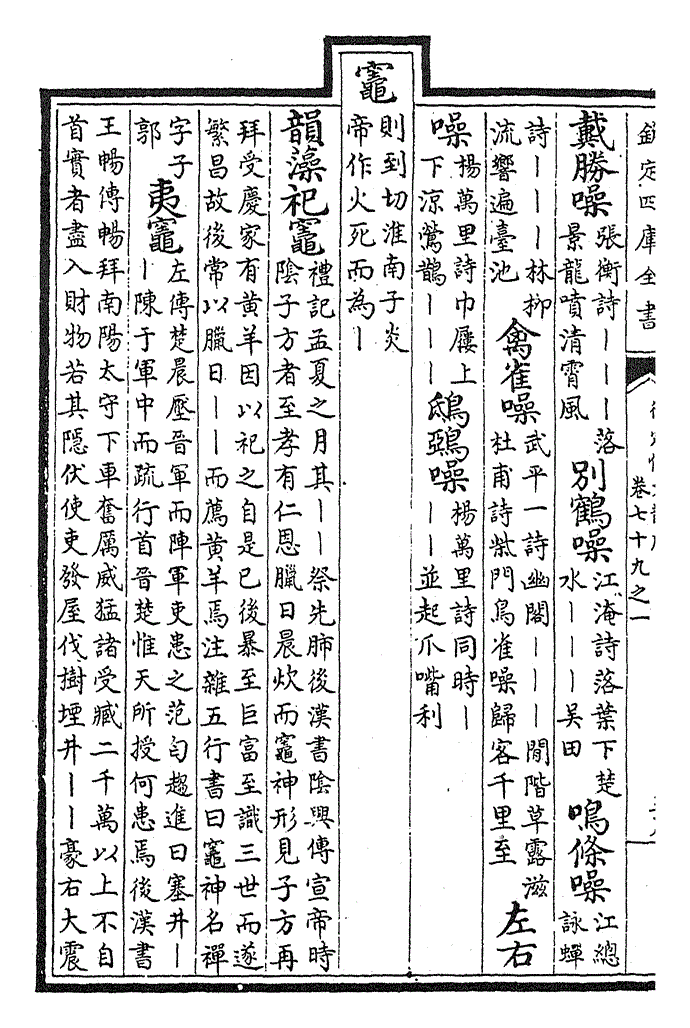 欽定四庫全書
卷七十九之一
戴勝噪 張衡詩丨丨丨落景龍噴清霄風 別鶴噪 江淹詩落葉下楚水丨丨丨吳田 鳴條噪 江總詠蟬
詩丨丨丨林柳流響遍臺池 禽雀噪 武平一詩幽閣丨丨丨閒階草露滋杜甫詩柴門鳥雀噪歸客千里至 左右
噪 楊萬里詩巾屨上下涼鶯鵲丨丨丨 鴟鵶噪 楊萬里詩同時丨丨丨並起爪嘴利
竈 則到切淮南子炎帝作火死而為丨
韻藻祀竈 禮記孟夏之月其丨丨祭先肺後漢書陰興傳宣帝時陰子方者至孝有仁恩臘日晨炊而竈神形見子方再
拜受慶家有黄羊因以祀之自是已後暴至巨富至識三世而遂
繁昌故後常以臘日丨丨而薦黄羊焉注雜五行書曰竈神名禪
字子郭 夷竈 左傳楚晨壓晉軍而陣軍吏患之范匄趨進曰塞井丨丨陳于軍中而疏行首晉楚惟天所授何患焉後漢書
王暢傳暢拜南陽太守下車奮厲威猛諸受臧二千萬以上不自
首實者盡入財物若其隱伏使吏發屋伐樹堙井丨丨豪右大震